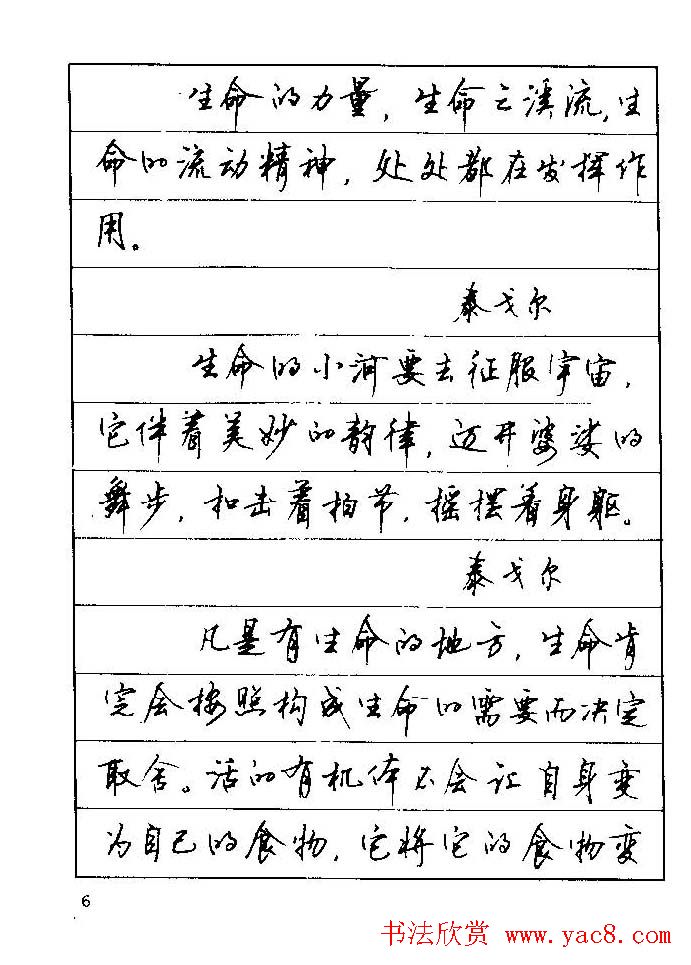 生命的力量，生命之溪流，生
命的流动精神，处处都在发挥作
用。
泰戈尔
生命的小河要去征服宇宙，
它伴着美妙的韵律，迈开婆娑的
舞步，和击着拍节，摇摆着身躯。
泰戈尔
凡是有生命的地方，生命肯
定会按照构成生命的需要而决定
取舍。活的有机体不会让自身变
为自己的食物，它将它的食物变
6
书法欣赏 www.yac8.com